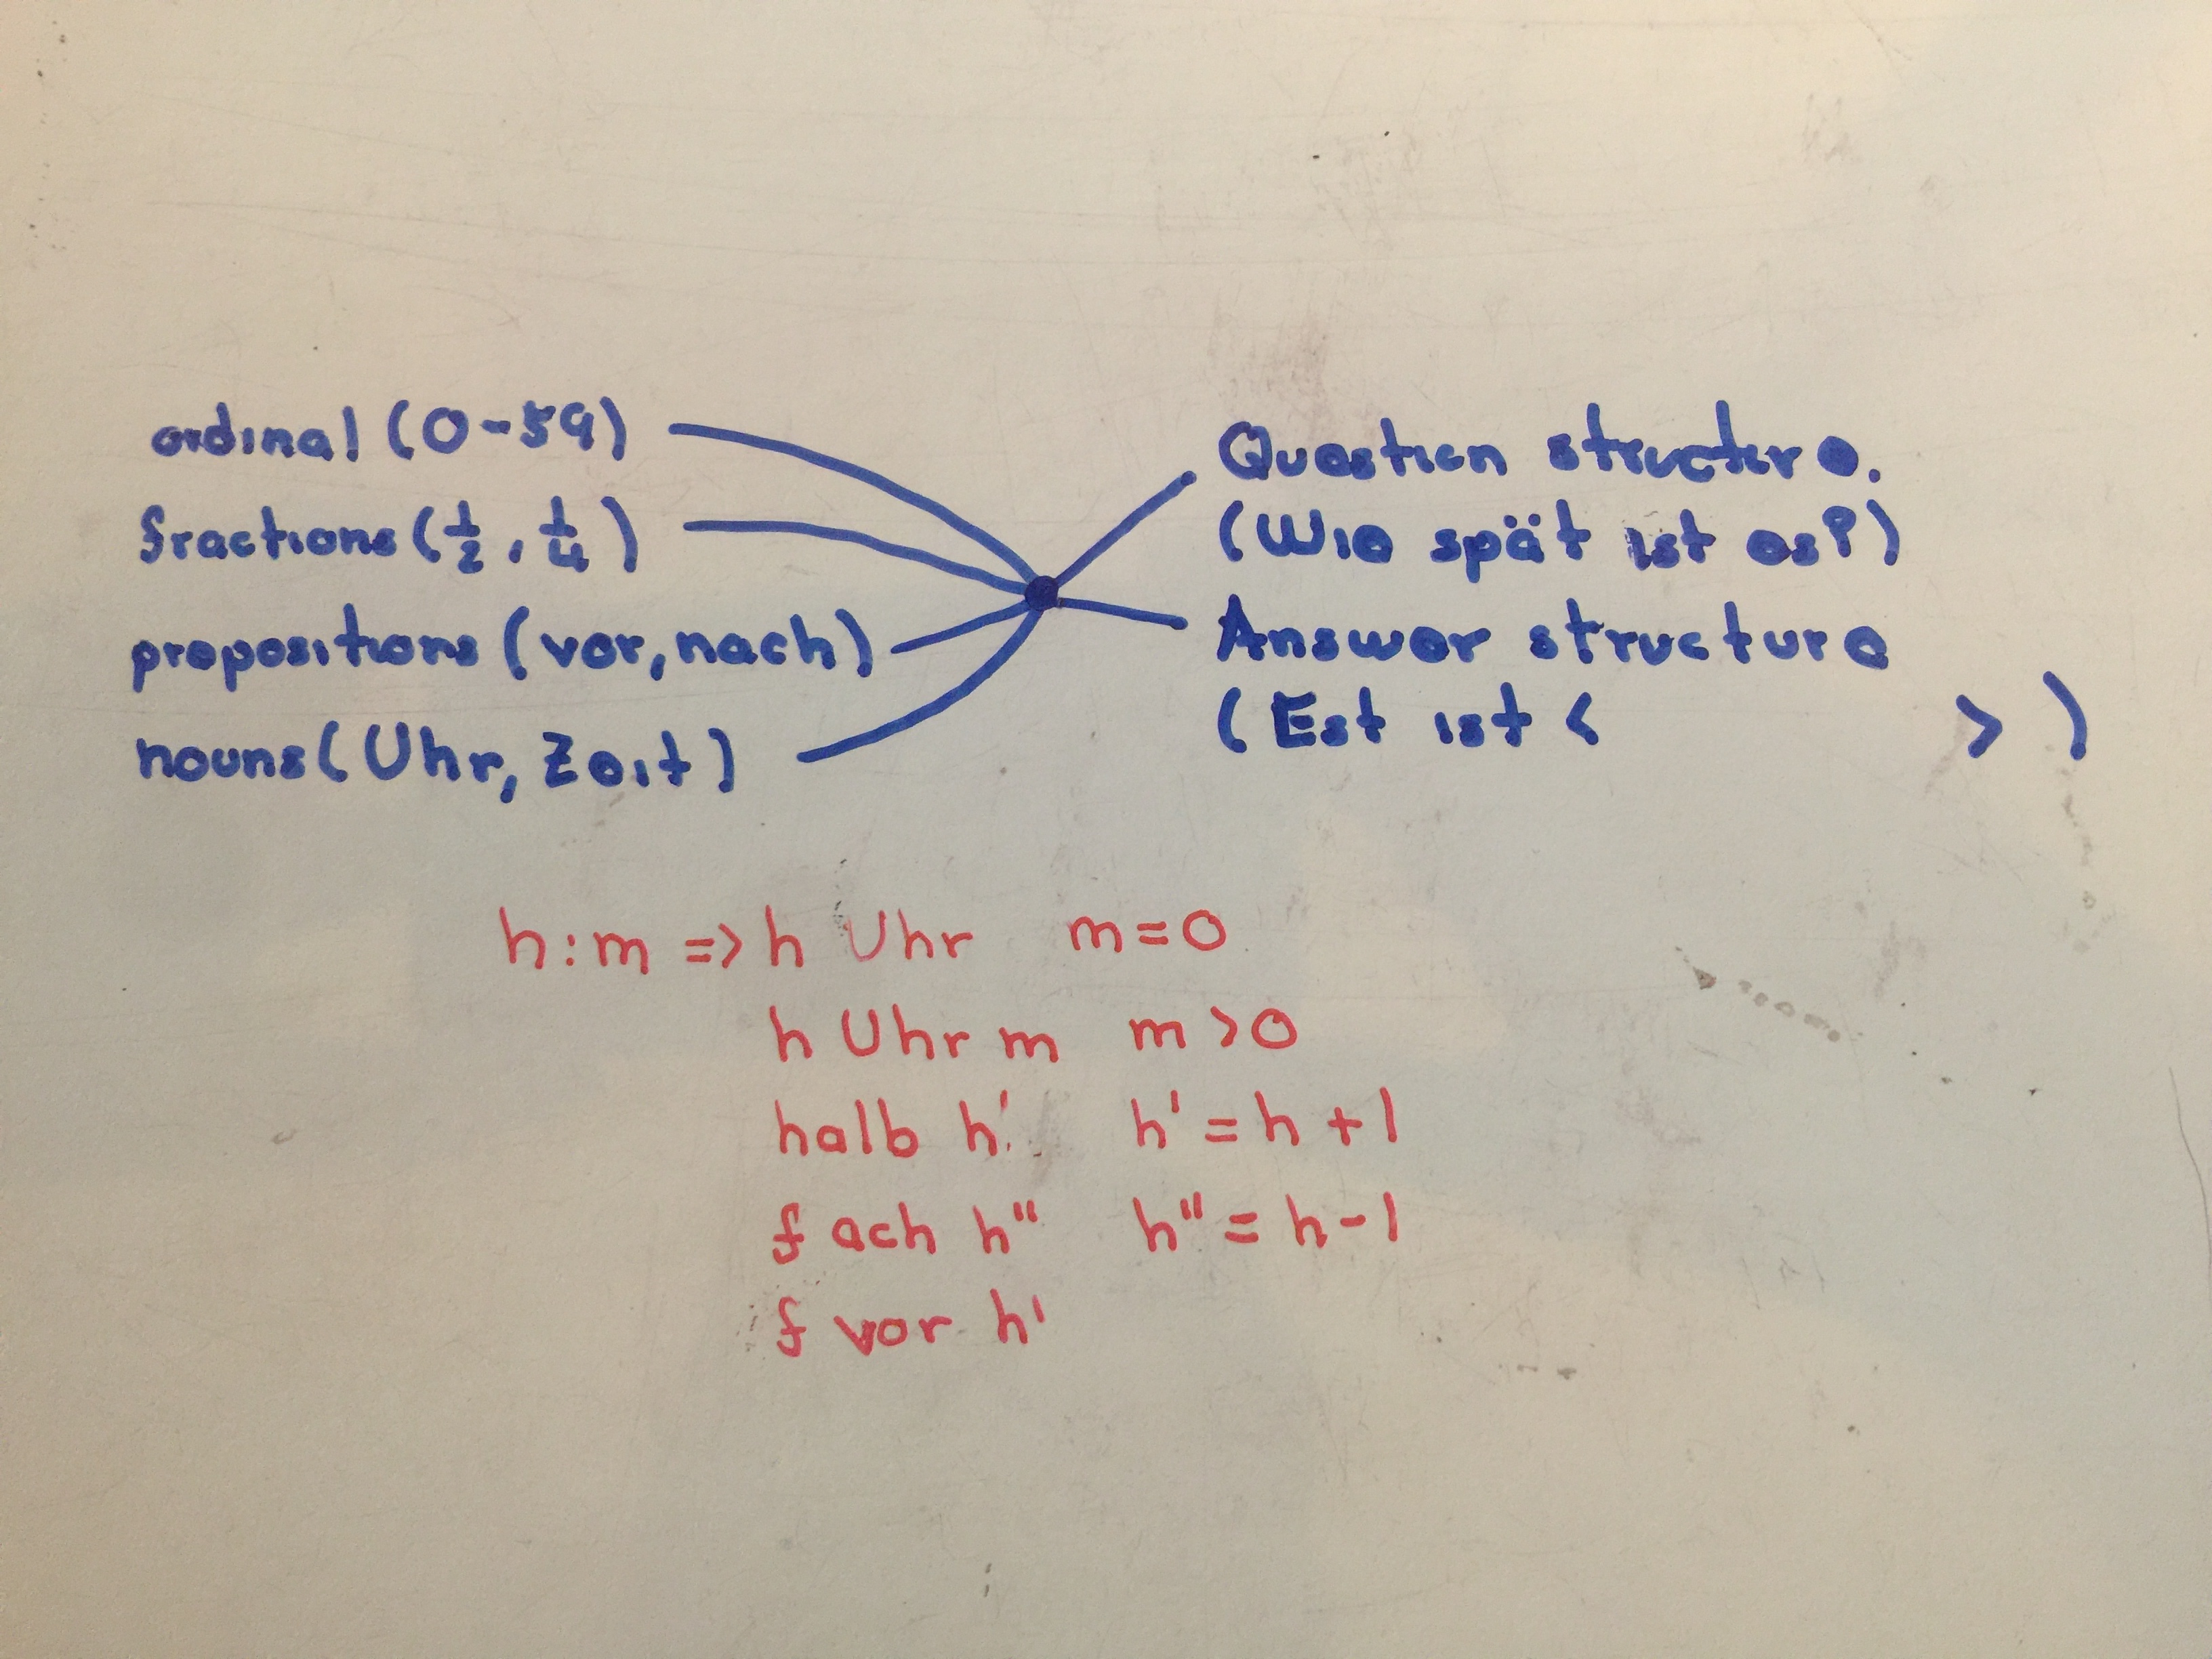 ordinal (0-59)
fractions (1/2, 1/4)
prepositions (vor, nach)
nouns (Uhr, Zeit)
Question structure.
(Wie spät ist es?)
Answer structure
(Est ist < > )
h:m => h Uhr m=0
h Uhr m m>0
halb h' h'=h+1
f ach h" h"=h-1
f vor h'